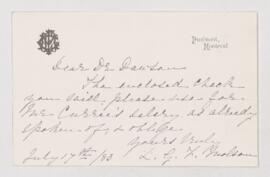 Piedmont,
Montreal
Dear Dr Dawson
The enclosed check
you will please use for
Mr Currie's salary as already
spoken of & oblige
Yours truly
July 17th / 83 L. G. F. Molson